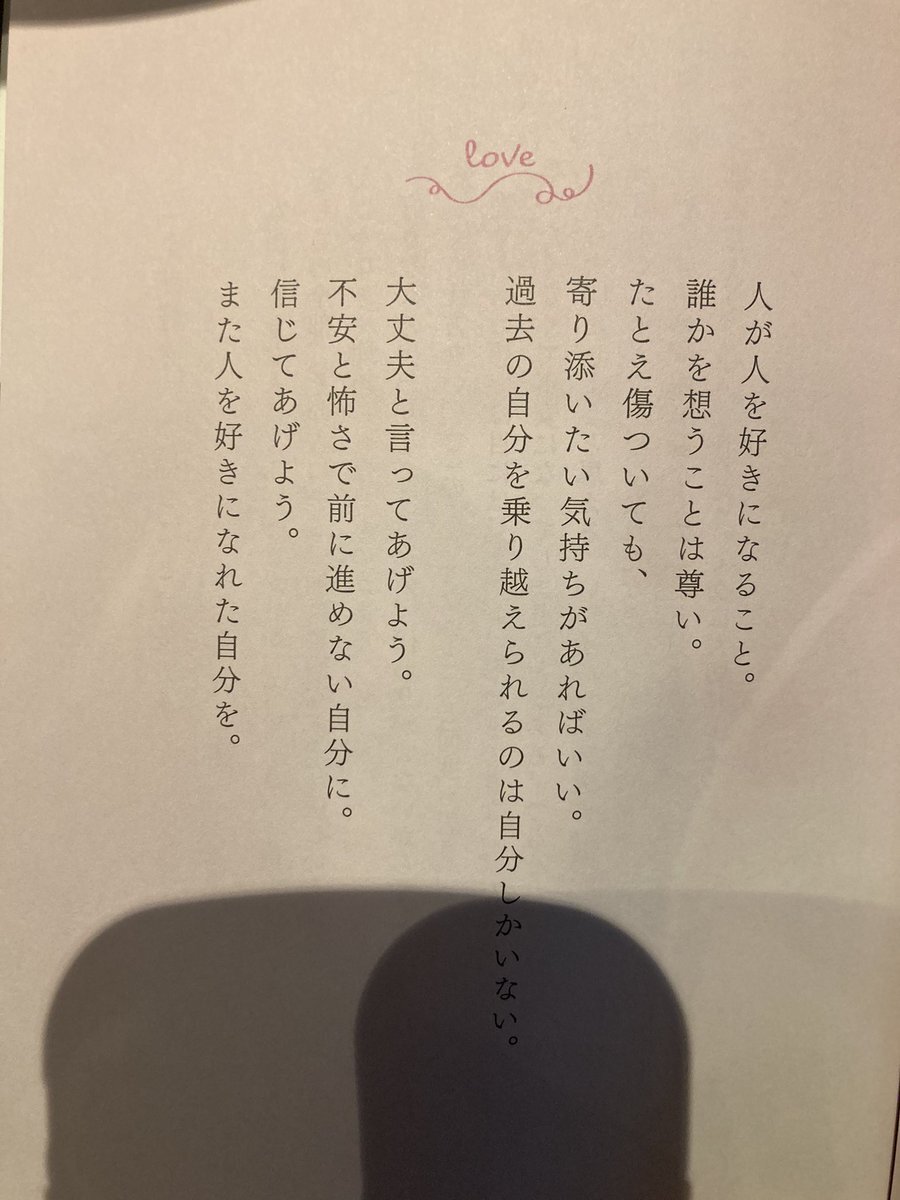 love
人が人を好きになること。
誰かを想うことは尊い。
たとえ傷ついても、
寄り添いたい気持ちがあればいい。
過去の自分を乗り越えられるのは自分しかいない。
大丈夫と言ってあげよう。
不安と怖さで前に進めない自分に。
信じてあげよう。
また人を好きになれた自分を。